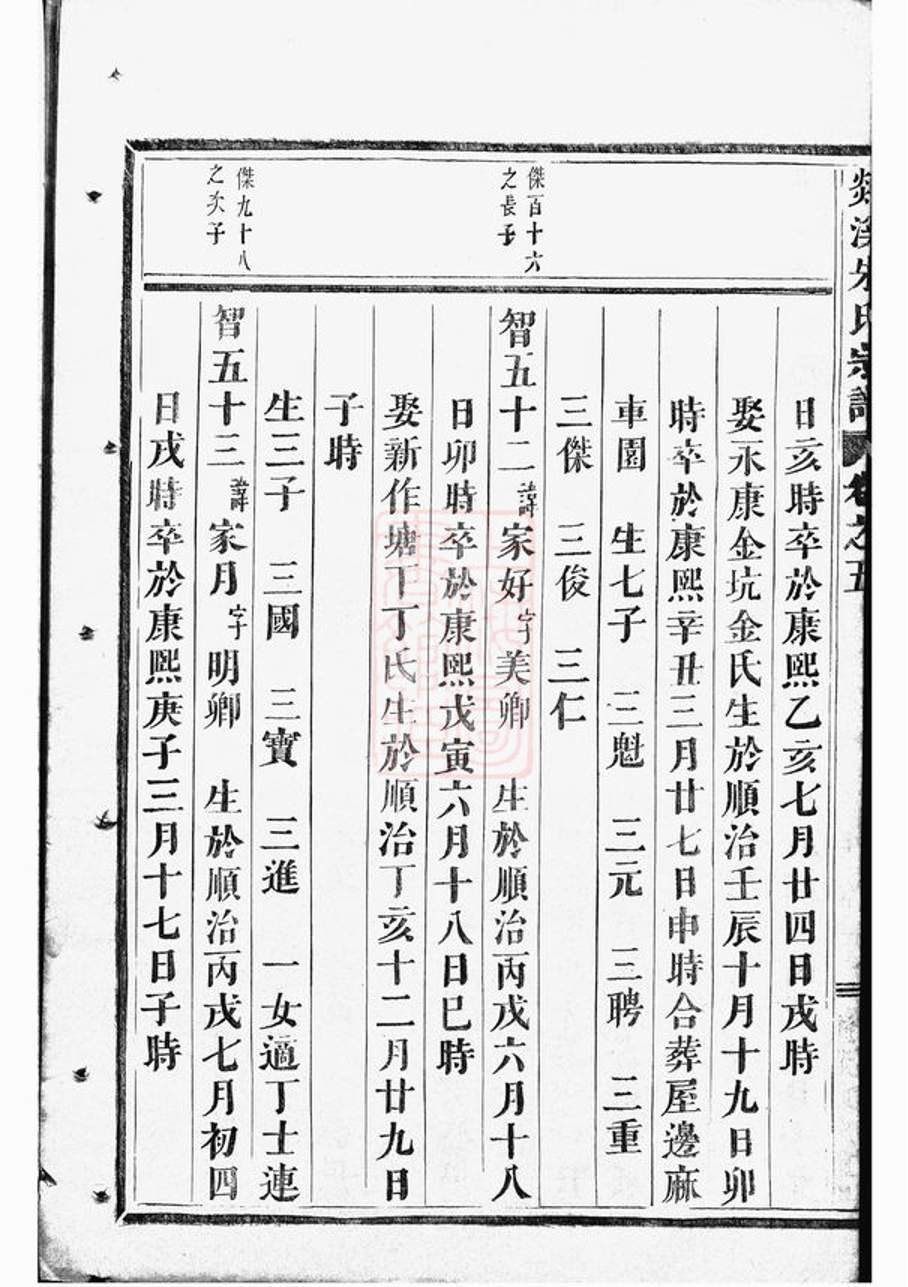 剡溪朱氏宗譜 卷之五
日亥時卒於康熙乙亥七月廿四日戌時
娶永康金坑金氏生於順治壬辰十月十九日卯
時卒於康熙辛丑三月廿七日申時合葬屋邊麻
車園 生七子 三魁 三元 三聘 三重
三傑 三俊 三仁
傑百十六
之長子
智五十二 諱家好 字美卿 生於順治丙戌六月十八
日卯時卒於康熙戊寅六月十八日巳時
娶新作塘下丁氏生於順治丁亥十二月廿九日
子時
生三子 三國 三寶 三進 一女適丁士連
傑九十八
之次子
智五十三 諱家月 字明卿 生於順治丙戌七月初四
日戌時卒於康熙庚子三月十七日子時